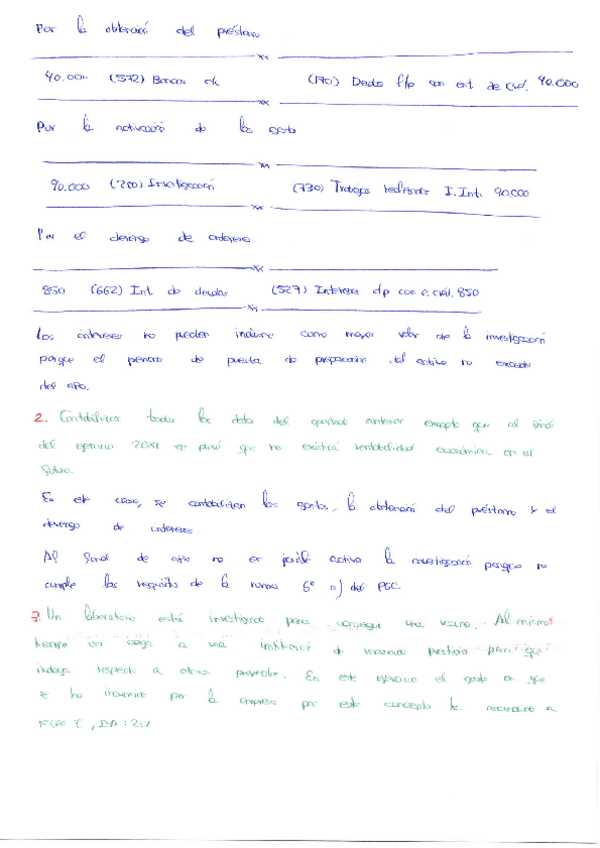 Por la obtención del préstamo
40.000 (572) Bancos c/c (170) Deudas l/p con ent. de créd. 40.000
Por la activación de los gastos
90.000 (200) Investigación (730) Trabajos realizados I. Int. 90.000
Por el devengo de intereses
850 (662) Int. de deudas (527) Intereses c/p con e. créd. 850
Los intereses no pueden incluirse como mayor valor de la investigación
porque el periodo de puesta de preparación del activo no excede
del año.
2. Contabilizar todos los datos del apartado anterior excepto que al final
del ejercicio 20X1 se pensó que no existirá rentabilidad económica en el
futuro.
En este caso, se contabilizan los gastos, la obtención del préstamo y el
devengo de intereses
Al final de año no es posible activar la investigación porque no
cumple los requisitos de la norma 6ª a) del PGC.
3. Un laboratorio está investigando para conseguir una vacuna. Al mismo
tiempo encarga a una institución de reconocido prestigio para que
indague respecto a otros. En este ejercicio el gasto en que
se ha incurrido por la empresa por este concepto ha ascendido a
€, IVA: 21%